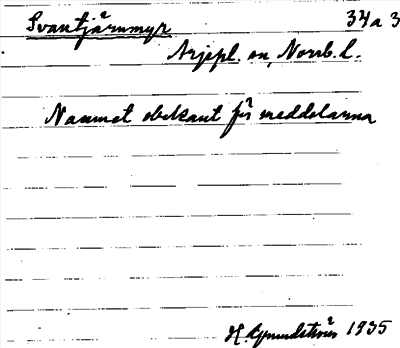 Svantjärnmyr 34a 3
Arjepl. sn, Norrb. l.
Namnet obekant för meddelarna
H. Grundström 1935